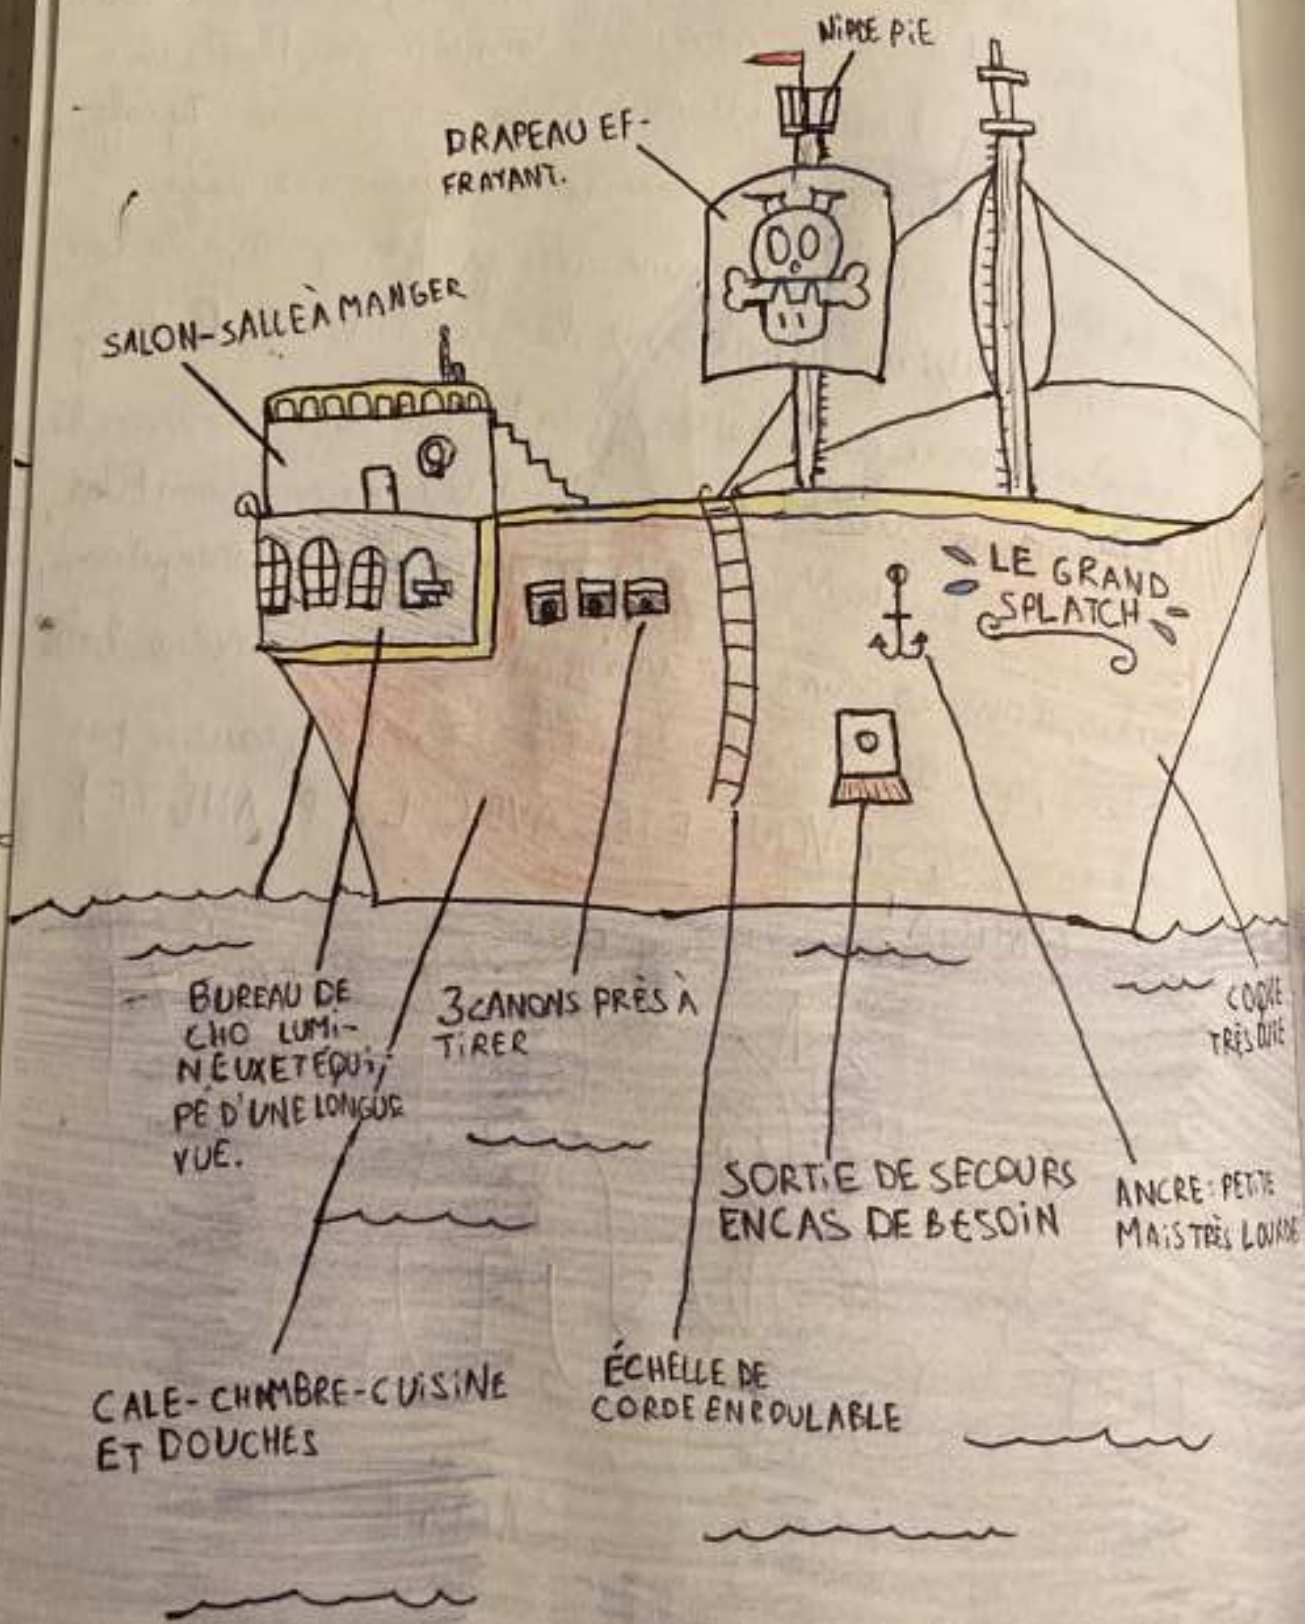 NiDDE PiE
DRAPEAU EF-
FRAYANT.
SALON-SALLE À MANGER
LE GRAND
SPLATCH
BUREAU DE
CHO LUMI-
NEUX ET ÉQUi,
PÉ D'UNE LONGUE
VUE.
3 CANONS PRÈS À
TiRER
COQUE
TRÈS
SORTiE DE SECOURS
EN CAS DE BESOiN
ANCRE: PETiTE
MAiS TRÈS LOURDE
CALE-CHAMBRE-CUiSiNE
ET DOUCHES
ÉCHELLE DE
CORDE ENROULABLE